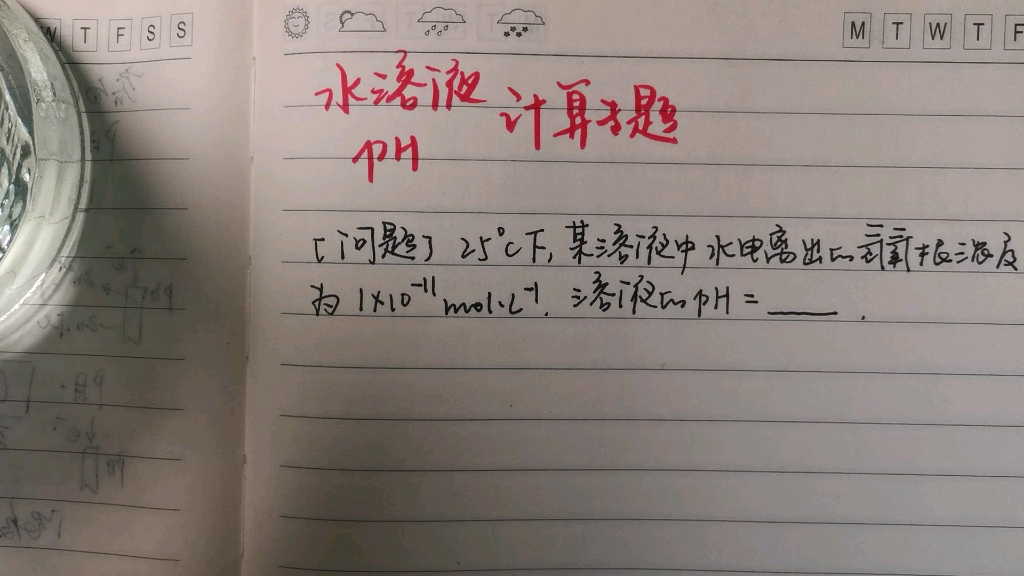 W T F S S
M T W T F
水溶液 计算专题
pH
[问题] 25℃下,某溶液中水电离出的氢氧根浓度
为 1×10⁻¹¹ mol·L⁻¹. 溶液的pH = ____ .